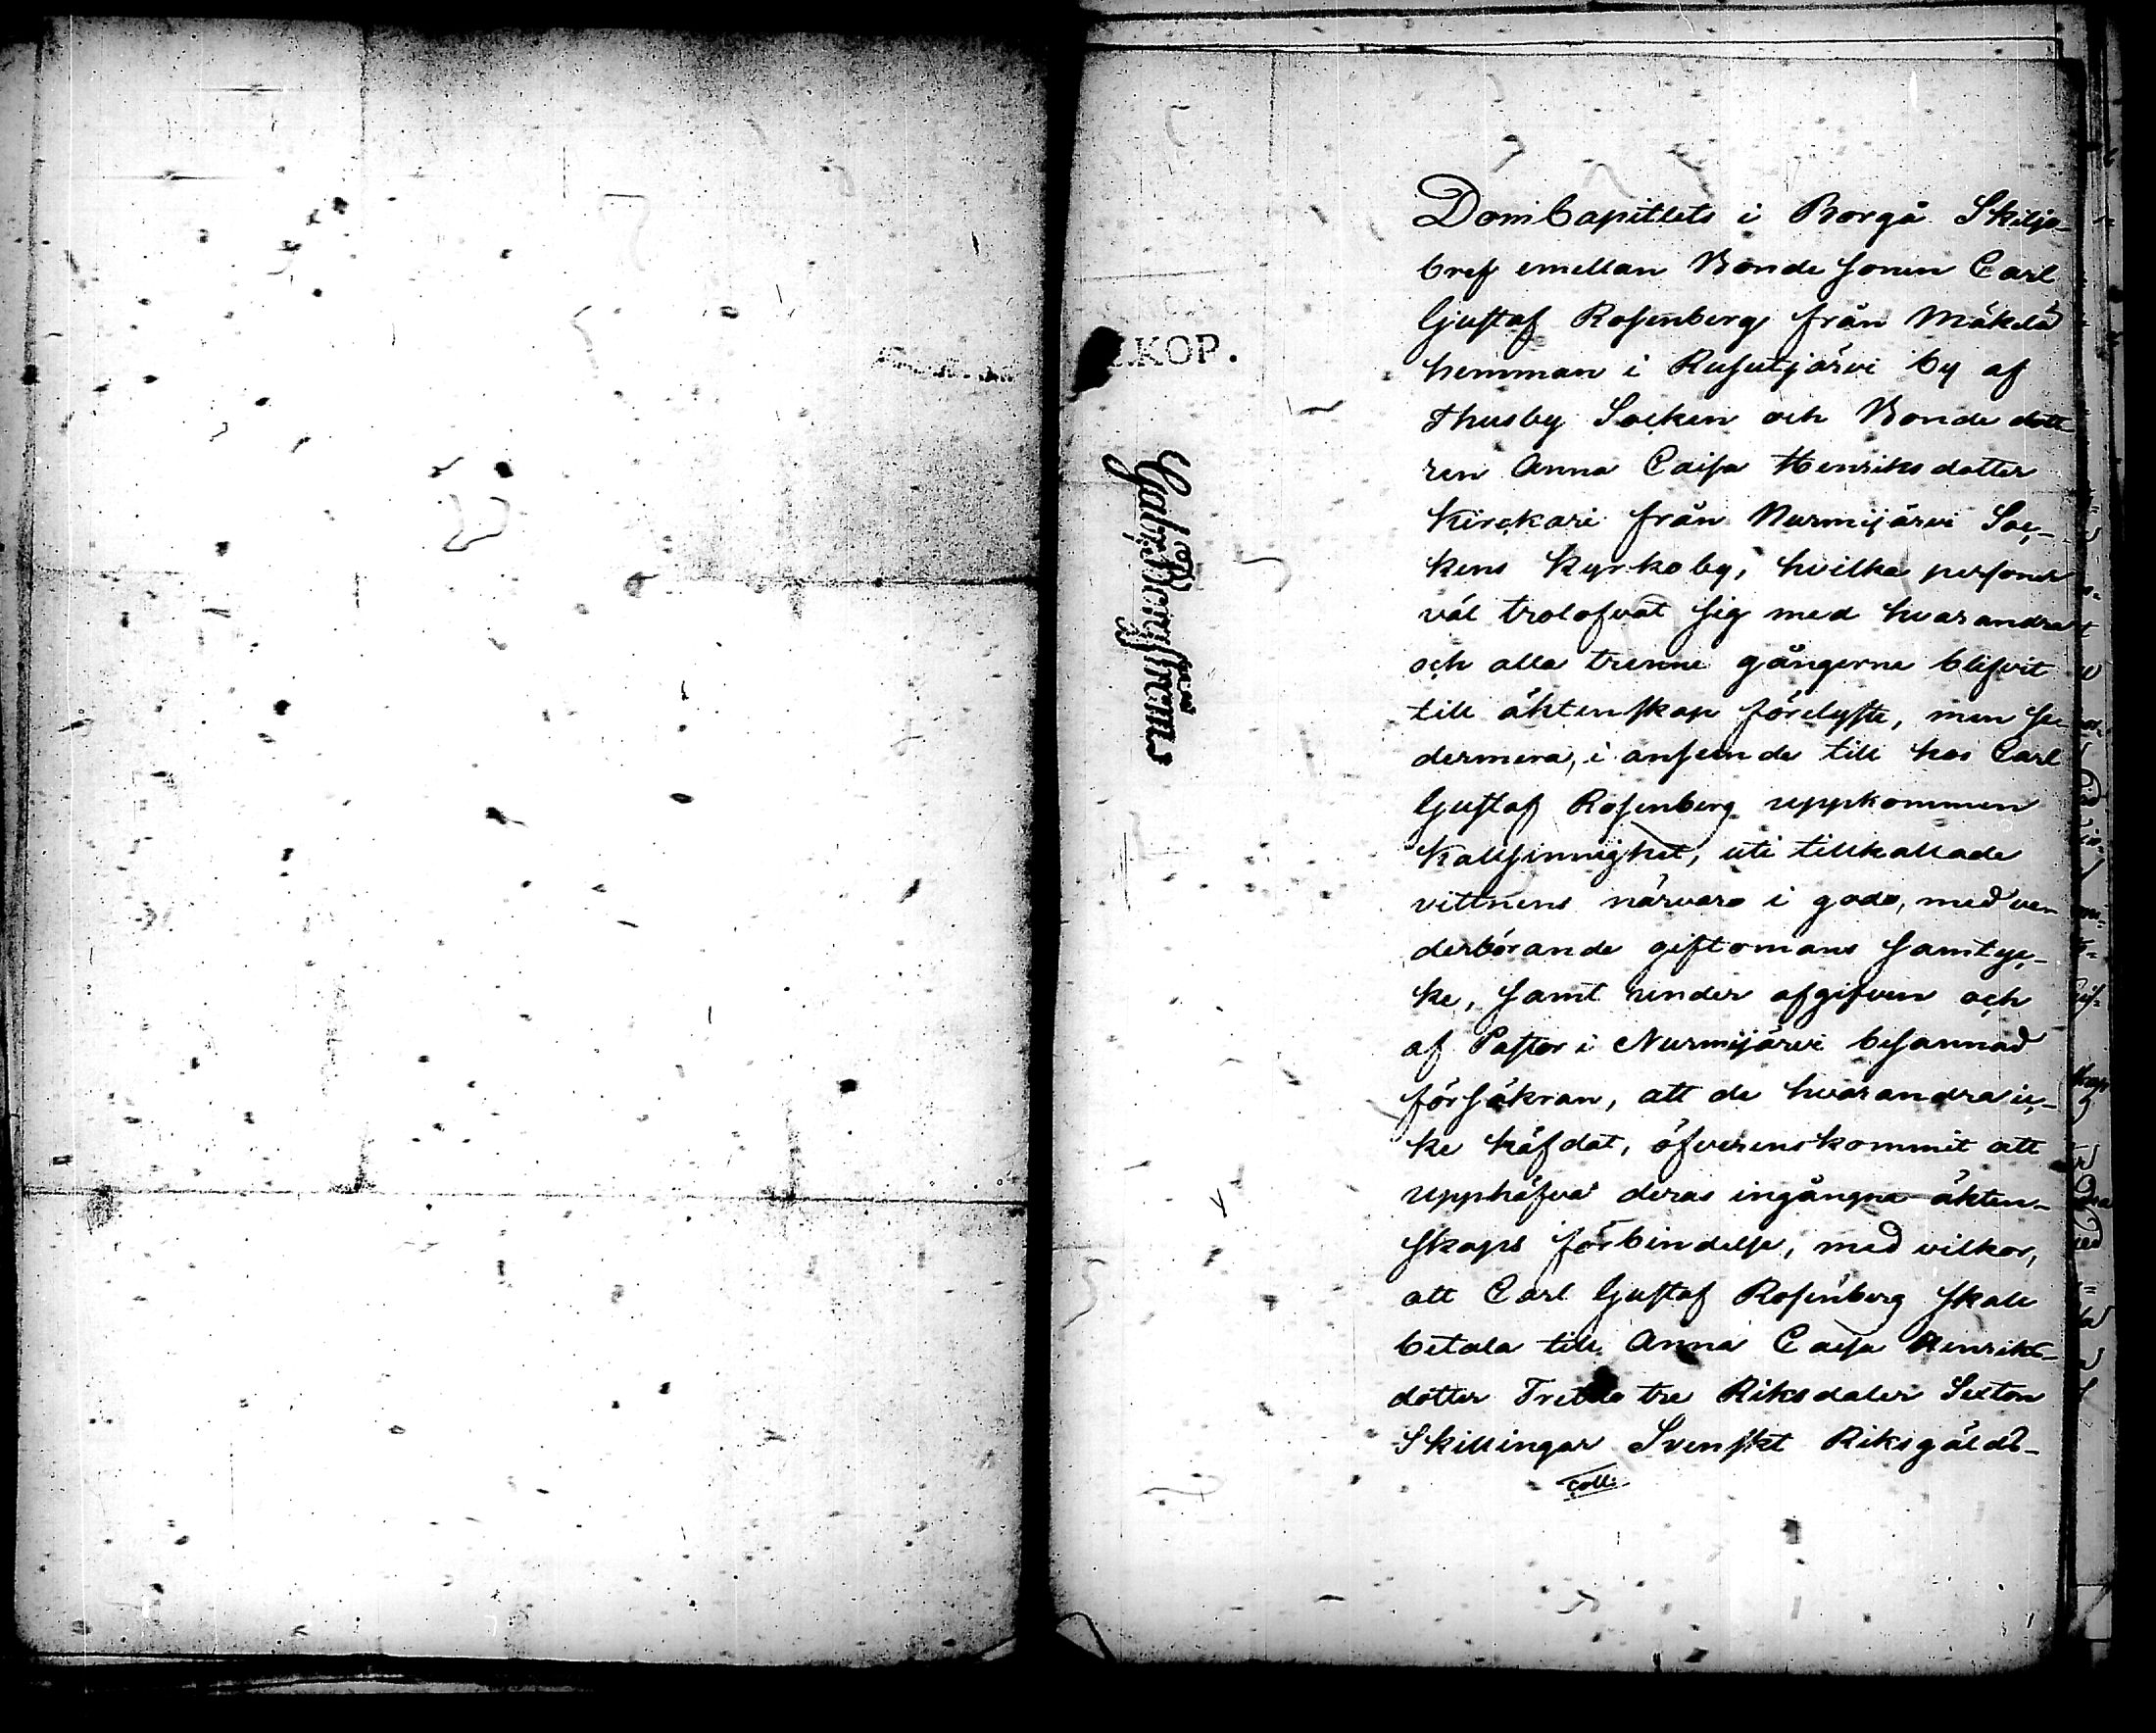 DomCapitlets i Borgå Skiljo-
bref emellan Bonde sonen Carl
Gustaf Rosenberg från Mäkelä
hemman i Rusutjärvi by af
Thusby Socken och Bonde dott-
ren Anna Caisa Henriksdotter
Kirckari från Nurmijärvi Soc-
kens Kyrkoby, hvilka personer
väl trolofvat sig med hvarandra
och alla trenne gångerne blifvit
till äktenskap förelyste, men se-
dermera, i anseende till hos Carl
Gustaf Rosenberg uppkommen
Kallsinnighet, uti tillkallade
vittnens närvaro i godo, med ve-
derbörande giftomans samtyc-
ke, samt under afgifven och
af Pastor i Nurmijärvi besannad
försäkran, att de hvarandra ic-
ke häfdat, öfverenskommit att
upphäfva deras ingångna äkten-
skaps förbindelse, med vilkor,
att Carl Gustaf Rosenberg skall
betala till Anna Caisa Henriks-
dotter Trettio tre Riksdaler Sexton
Skillingar Svenskt Riksgälds-
coll:
KOP.